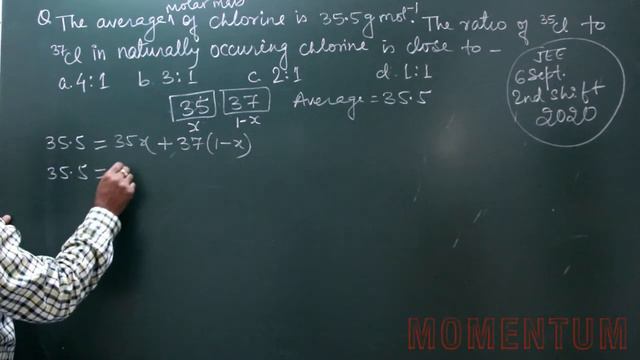 Q The average molar mass of chlorine is 35.5 g mol⁻¹. The ratio of ³⁵Cl to
³⁷Cl in naturally occuring chlorine is close to –
a. 4:1 b. 3:1 c. 2:1 d. 1:1
JEE
6 Sept.
2nd Shift
2020
35 37 Average = 35.5
x 1-x
35.5 = 35x + 37(1-x)
35.5 =
MOMENTUM